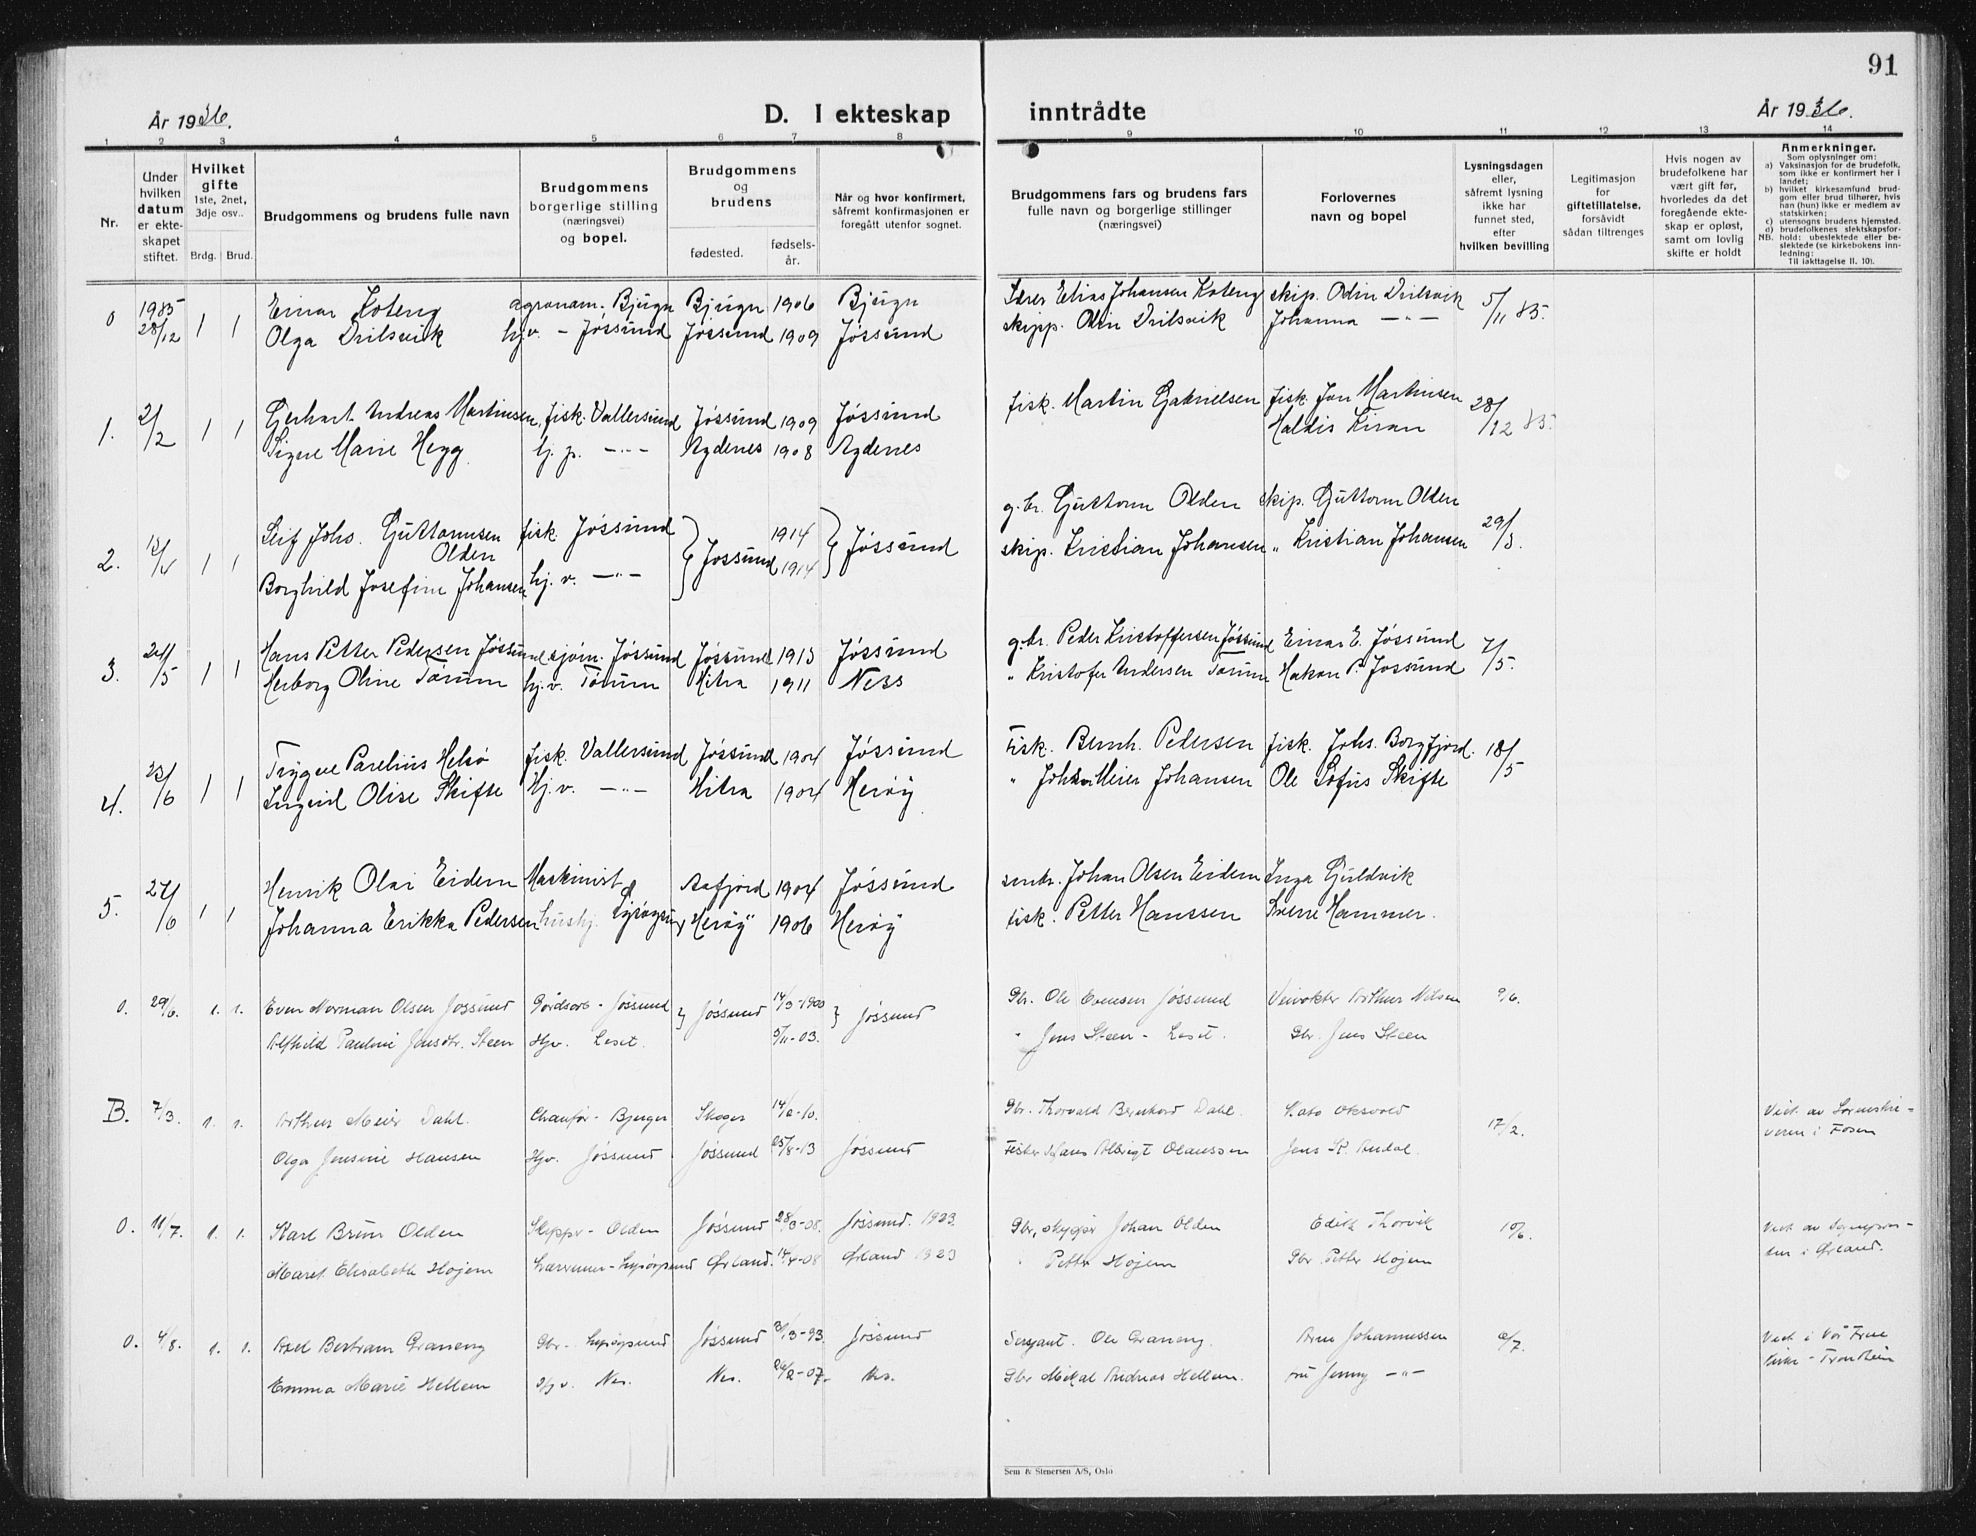 91
År 1936.
D. I ekteskap inntrådte
År 1936.
1 2 3 4 5 6 7 8 9 10 11 12 13 14
Nr.
Under hvilken datum er ekteskapet stiftet.
Hvilket gifte 1ste, 2net, 3dje osv..
Brdg. Brud.
Brudgommens og brudens fulle navn
Brudgommens borgerlige stilling (næringsvei) og bopel.
Brudgommens og brudens
fødested.
fødselsår.
Når og hvor konfirmert, såfremt konfirmasjonen er foregått utenfor sognet.
Brudgommens fars og brudens fars fulle navn og borgerlige stillinger (næringsvei)
Forlovernes navn og bopel
Lysningsdagen eller, såfremt lysning ikke har funnet sted, efter hvilken bevilling
Legitimasjon for giftetillatelse, forsåvidt sådan tiltrenges
Hvis nogen av brudefolkene har vært gift før, hvorledes da det foregående ekteskap er opløst, samt om lovlig skifte er holdt
Anmerkninger.
Som oplysninger om:
a) Vaksinasjon for de brudefolk, som ikke er konfirmert her i landet;
b) hvilket kirkesamfund brudgom eller brud tilhører, hvis han (hun) ikke er medlem av statskirken;
c) utensogns brudens hjemsted.
d) brudefolkenes slektskapsforhold: ubeslektede eller beslektede (se kirkebokens innledning:
NB. Til iakttagelse II. 10).
0 1935 28/12 1 1 Einar Koteng agronom. Bjugn Bjugn 1906 Bjugn Elias Johansen Koteng skip. Odin Drilsvik 5/11 35.
Olga Drilsvik hj.v. - Jøssund Jøssund 1909 Jøssund skipp. Odin Drilsvik Johanna -"-
1. 2/2 1 1 Gerhart Andreas Martinsen, fisk. Vallersund Jøssund 1909 Jøssund fisk. Martin Gabrielsen fisk. Jon Martinsen 28/12 35.
Signe Marie Hegg hj. p. -"- Agdenes 1908 Agdenes Haldis Kiran
2. 12/4 1 1 Leif Johs. Guttormsen Olden fisk. Jøssund } Jøssund 1914 } Jøssund g.br. Guttorm Olden skip. Guttorm Olden 29/3.
Borghild Josefine Johansen hj. v. -"- 1914 skip. Kristian Johansen " Kristian Johansen
3. 21/5 1 1 Hans Petter Pedersen Jøssund sjøm. Jøssund Jøssund 1913 Jøssund g.br. Peder Kristoffersen Jøssund Einar E. Jøssund 7/5.
Herborg Oline Tørum hj.v. Tørum Hitra 1911 Ness " Kristofer Andersen Tørum Hakon P. Jøssund
4. 23/6 1 1 Trygve Parelius Helsø fisk. Vallersund Jøssund 1904 Jøssund Fisk. Bernh. Pedersen fisk. Johs. Borgfjord. 18/5
Ingrid Olise Skifte Hj.v. -"- Hitra 1904 Herøy " Johan Meier Johansen Ole Sofus Skifte
5. 27/6 1 1 Henrik Olai Eidem Maskinist Aafjord 1904 Jøssund Johan Olsen Eidem Inga Guldvik
Johanna Erikka Pedersen Herøy 1906 Herøy fisk. Petter Hanssen Sverre Hammer.
0. 29/6. 1. 1. Even Norman Olsen Jøssund Gårdsarb - Jøssund } Jøssund 14/3-1900 } Jøssund Gbr. Ole Evensen Jøssund Veivokter Arthur Nilsen 9/6.
Alfhild Pauline Jensdtr. Steen Hjv. Leset. 5/11-03. " Jens Steen - Leset. Gbr. Jens Steen
B. 7/3. 1. 1. Arthur Meier Dahl. Chaufør - Bjugn Skoger 14/2-10. Gbr. Thorvald Bernhard Dahl. Oksvold 17/2. Viet av Sorenskriveren i Fosen
Olga Jensine Hansen Hjv. Jøssund Jøssund 25/8-13 Jøssund Fisker Hans Albrigt Olaussen Jens St. Audal.
0. 11/7. 1. 1. Karl Brun Olden Skipper - Olden Jøssund 28/3-08. Jøssund. 1923. Gbr, skipper Johan Olden Edith Thorvik 10/6. Viet av Sognepresten i Ørland.
Maret Elisabeth Højem Lærerinne - Lysøysund Ørland. 14/4-08 Ørland 1923 " Petter Højem Gbr Petter Højem
0. 4/8. 1. 1. Axel Bertram Graneng Gbr - Lysøysund Jøssund 3/3-93. Jøssund Sersjant. Ole Graneng. Arne Johannessen 2/7. Viet i Vår Frue Kirke - Trondheim
Emma Marie Hellem Hjv. Nes. Nes. 26/2-07. Nes. Gbr Mikal Andreas Hellem. Fru Jenny -"-
Sem & Stenersen A/S, Oslo